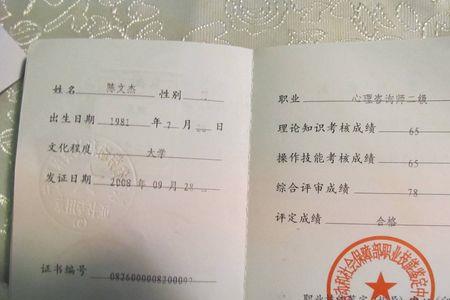 姓名 陈文杰 性别
出生日期 1981 年 7 月 日
文化程度 大学
发证日期 2008 年 09 月 28 日
证书编号
职业 心理咨询师二级
理论知识考核成绩 65
操作技能考核成绩 65
综合评审成绩 78
评定成绩 合格
社会保障部职业技能鉴定中